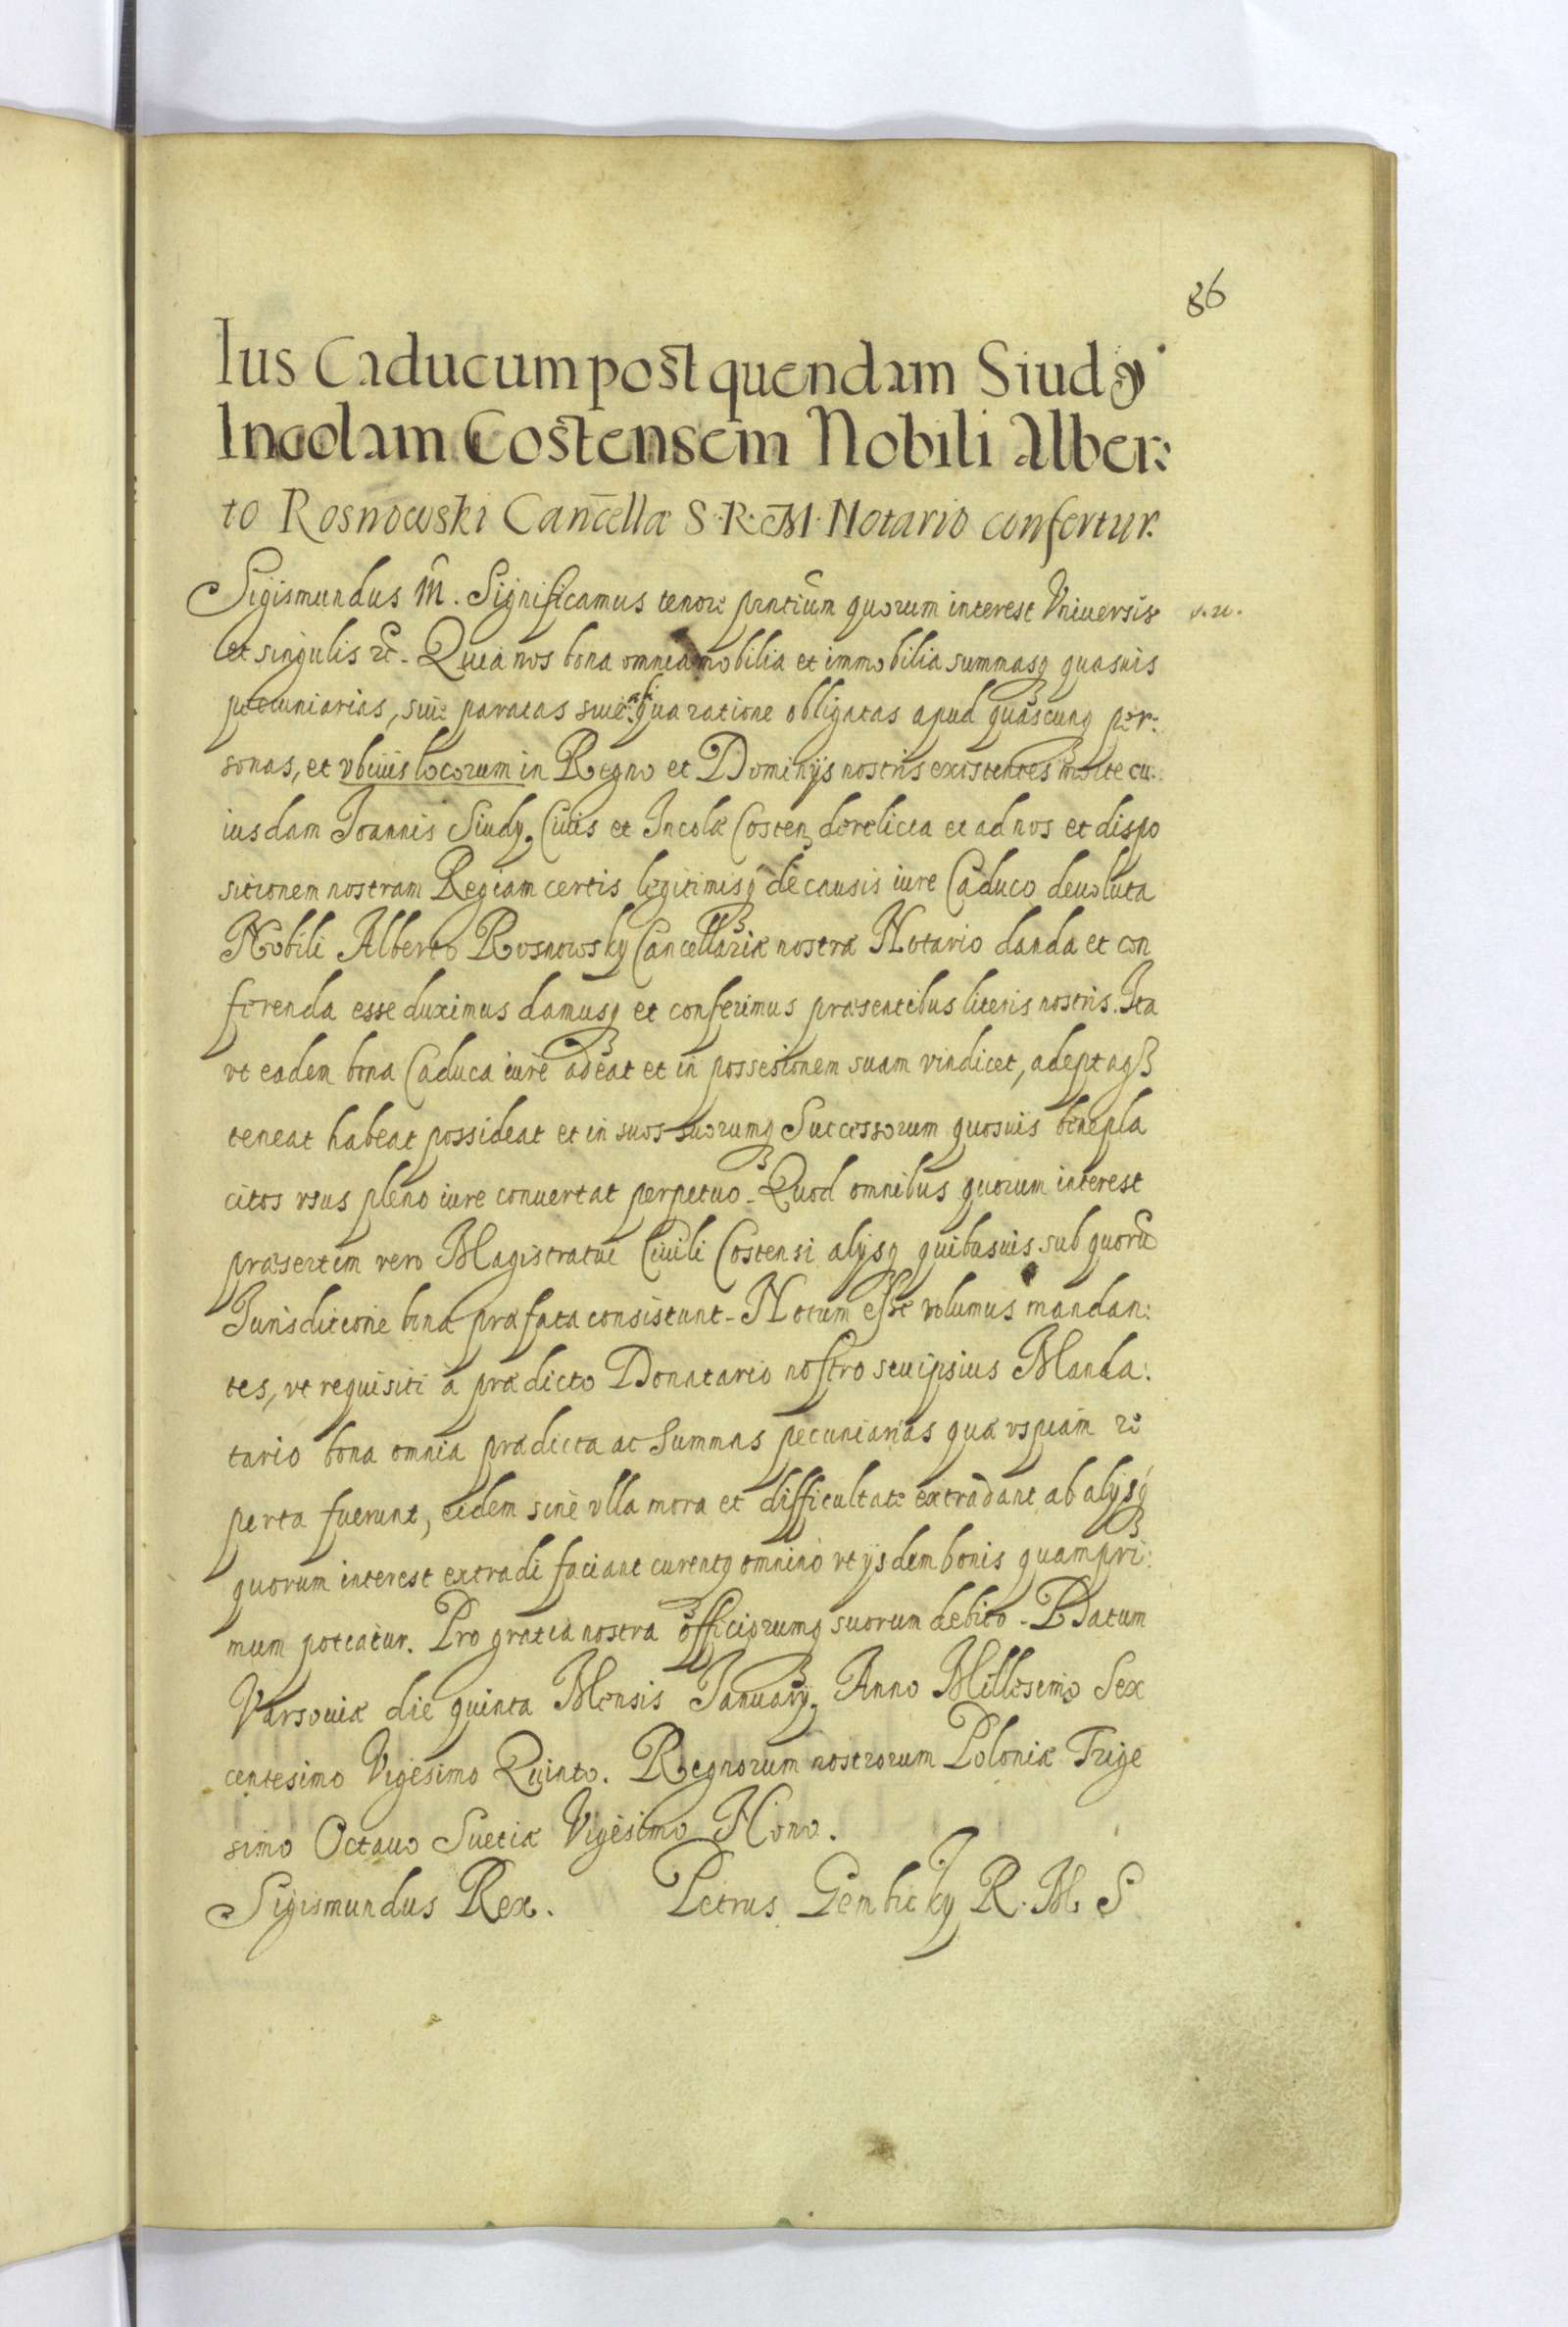 86
Ius Caducum post quendam Siudy
Incolam Costensem Nobili Alber:
to Rosnowski Cancellæ S. R. M. Notario confertur.
Sigismundus m̃. Significamus tenore pñtium quorum interest Vniversis
et singulis etc. Quia nos bona omnia mobilia et immobilia summasq quasuis
pecuniarias, siue paratas siue aliqua ratione obligatas apud quascunq per:
sonas, et vbiuis locorum in Regno et Dominijs nostris existentes morte cu:
iusdam Joannis Siudy, Ciuis et Incolæ Costen derelicta et ad nos et dispo
sitionem nostram Regiam certis legitimisq de causis iure Caduco deuoluta
Nobili Alberto Rosnowsky Cancellariæ nostræ Notario danda et con
ferenda esse duximus damusq et conferimus præsentibus literis nostris. Ita
vt eadem bona Caduca iure adeat et in possesionem suam vindicet, adeptaq
teneat habeat possideat et in suos suorumq Successorum quosuis benepla
citos vsus pleno iure conuertat perpetuo. Quod omnibus quorum interest
præsertim vero Magistratui Ciuili Costensi alijsq quibusuis sub quorũ
Jurisditione bona præfata consistunt. Notum esse volumus mandan:
tes, vt requisiti à prædicto Donatario nostro seu ipsius Manda:
tario bona omnia prædicta ac Summas pecuniarias quæ vspiam re
perta fuerunt, eidem sine vlla mora et difficultate extradant ab alijsq
quorum interest extradi faciant curentq omnino vt ijsdem bonis quampri:
mum potiatur. Pro gratia nostra officiorumq suorum debito. Datum
Varsouiæ die quinta Mensis Januarij, Anno Millesimo Sex
centesimo Vigesimo Quinto. Regnorum nostrorum Poloniæ Trige
simo Octauo Suetiæ Vigesimo Nono.
Sigismundus Rex. Petrus Gembicky R. M. S